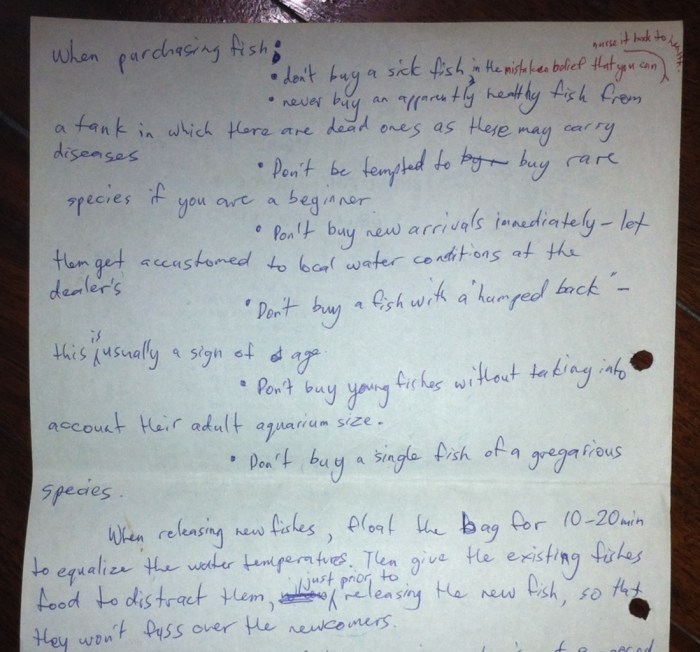 When purchasing fish:
• don't buy a sick fish, in the mistaken belief that you can nurse it back to
• never buy an apparently healthy fish from
a tank in which there are dead ones as these may carry
diseases
• Don't be tempted to buy rare
species if you are a beginner
• Don't buy new arrivals immediately – let
them get accustomed to local water conditions at the
dealer's
• Don't buy a fish with a "humped back" –
this is usually a sign of age
• Don't buy young fishes without taking into
account their adult aquarium size.
• Don't buy a single fish of a gregarious
species.
When releasing new fishes, float the bag for 10–20min
to equalize the water temperatures. Then give the existing fishes
food to distract them, just prior to releasing the new fish, so that
they won't fuss over the newcomers.